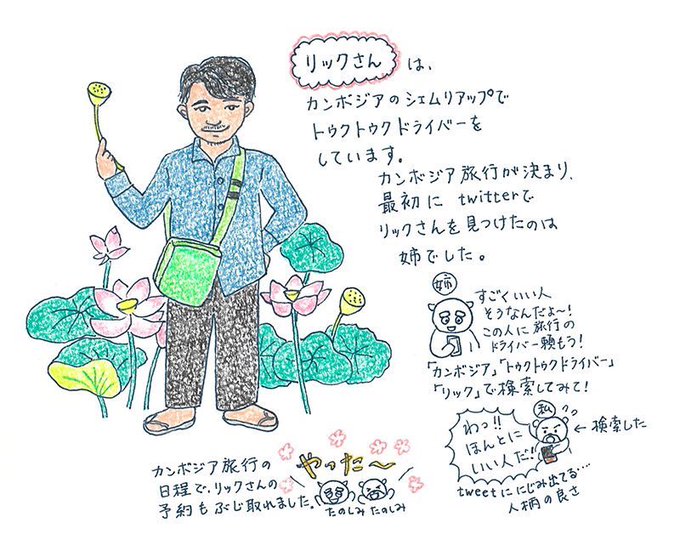 リックさん は、
カンボジアのシェムリアップで
トゥクトゥクドライバーを
しています。
カンボジア旅行が決まり、
最初に twitterで
リックさんを見つけたのは
姉でした。
姉
すごくいい人
そうなんだよ〜!
この人に旅行の
ドライバー頼もう!
「カンボジア」「トゥクトゥクドライバー」
「リック」で検索してみて!
私
わっ!!
ほんとに
いい人だ!
← 検索した
tweetににじみ出てる…
人柄の良さ
カンボジア旅行の
日程で、リックさんの
予約もぶじ取れました。
やった〜
たのしみ たのしみ